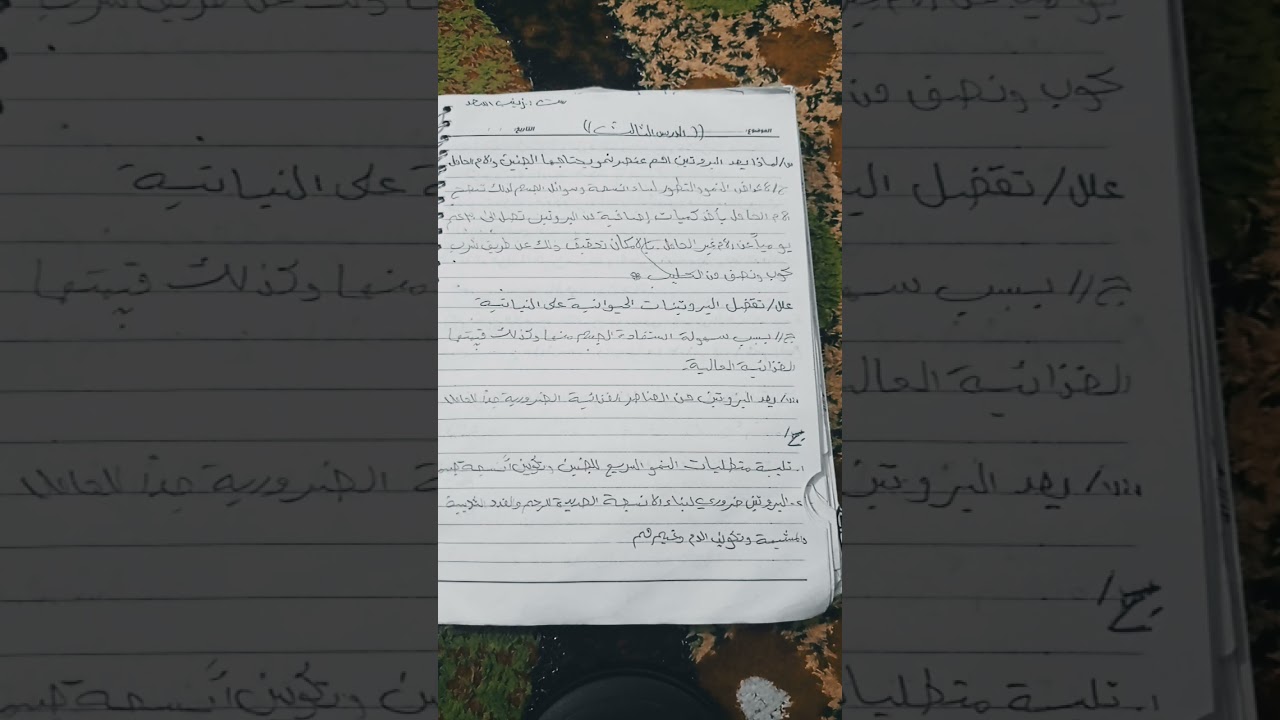 ست زينب اسعد
الموضوع: ((الدرس الثالث)) التاريخ:
س/ لماذا يعد البروتين اهم عنصر نمو يحتاجها الجنين والام الحامل
ج/ لاغراض النمو والتطور لبناء انسجة وسوائل الجسم لذلك تنصح
الام الحامل بأخذ كميات إضافية من البروتين تصل الى
يومياً عن الام غير الحامل بالامكان تحقيق ذلك عن طريق شرب
كوب ونصف من الحليب
علل/ تفضل البروتينات الحيوانية على النباتية
ج// بسبب سهولة استفادة الجسم منها وكذلك قيمتها
الغذائية العالية.
س/ يعد البروتين من العناصر الغذائية الضرورية جداً للحامل
ج/
١- تلبية متطلبات النمو السريع للجنين وتكوين أنسجة جسمه
٢- البروتين ضروري لبناء الانسجة الجديدة للرحم والغدد اللبنية
والمشيمة وتكوين الدم